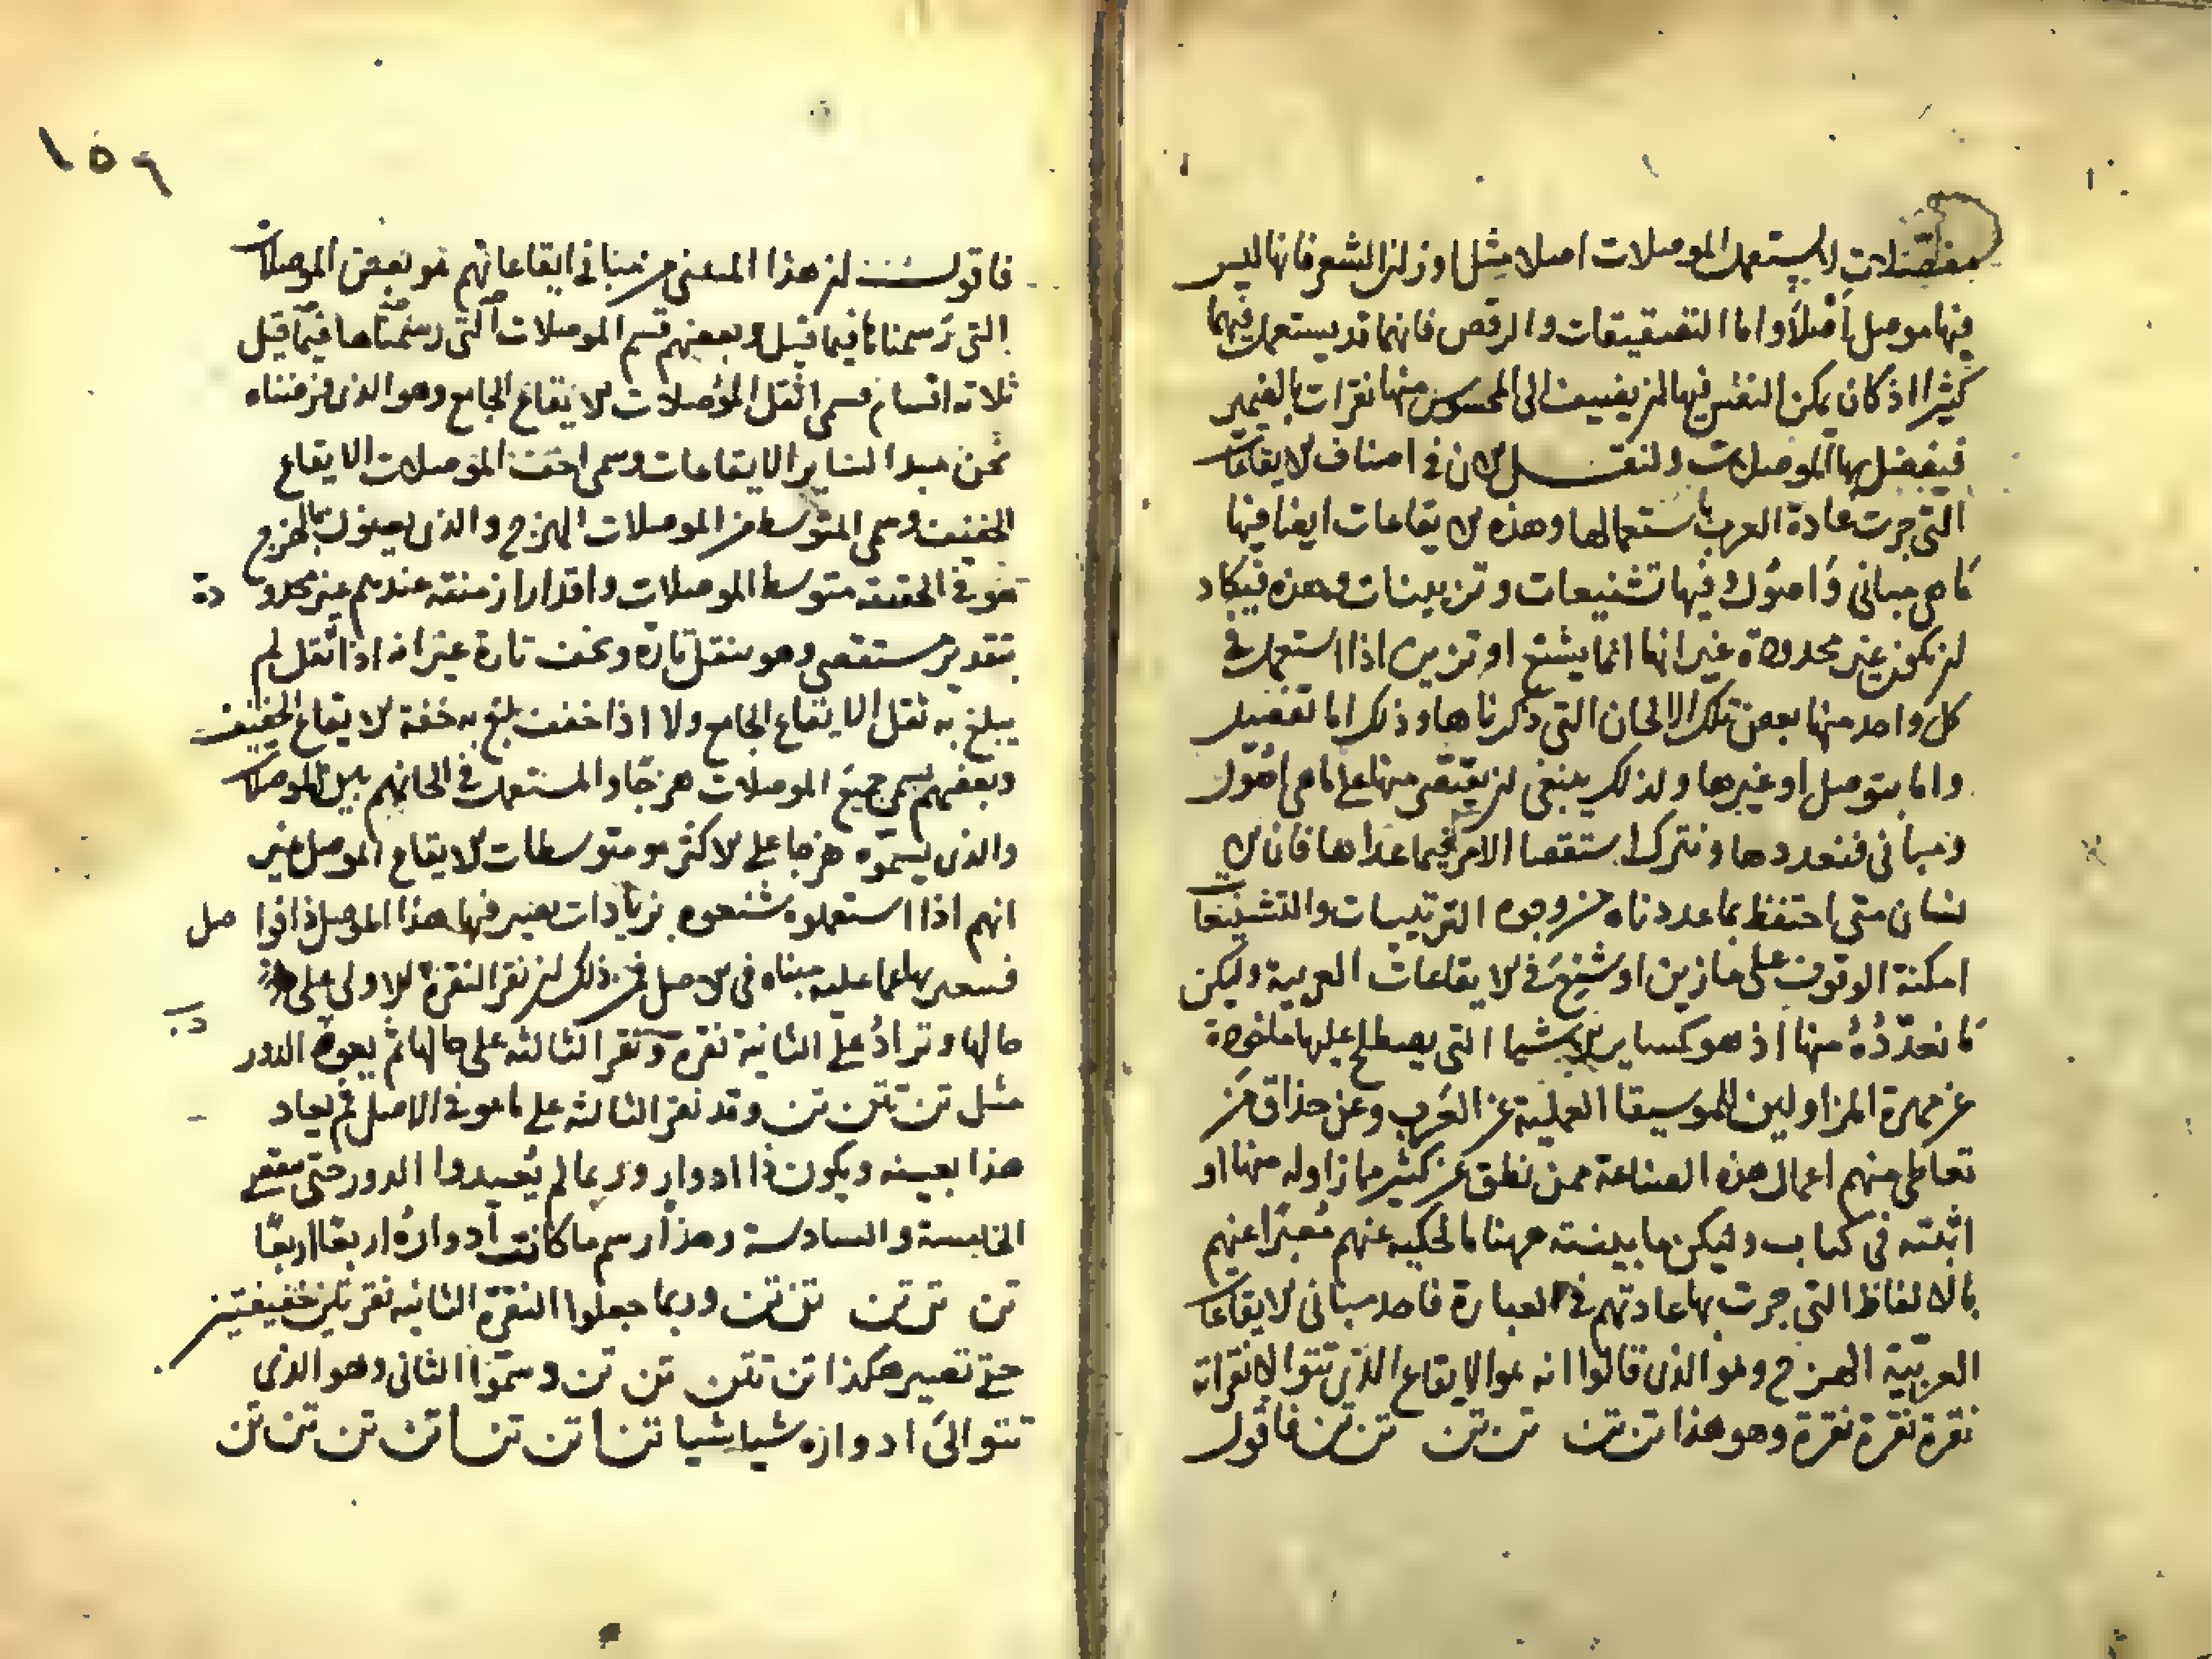 مفصلات لا يستعمل الموصلات اصلا مثل اوزان الشعر فانها ليس
فيها موصل اصلا واما التصفيقات والرقص فانهما قد يستعمل فيهما
كثيرا اذ كان يمكن النفس فيها ان يضيف الى المحسوس منها نقرات بالضمير
فيفصل بها الموصلات ولنقل الان في اصناف الايقاعات
التي جرت عادة العرب باستعمالها وهذه الايقاعات ايضا فيها
ما هي مباني واصول وفيها تشنيعات وتزيينات وهذه فيكاد
ان يكون غير محدودة غير انها انما يشنع او تزين اذا استعمل في
كل واحد منها بعض تلك الالحان التي ذكرناها وذلك اما تفضيل
واما بتوصل او غيرها ولذلك ينبغي ان يقتصر منها على ما هي اصول
ومباني فنعددها ونترك استقصا الامر فيما عداها فان الا
نسان متى احتفظ بما عددناه من وجوه الترتيبات والتشنيعات
امكنه الوقوف على ما زين او شنع في الايقاعات العربية وليكن
ما نعدده منها اذ هو كساير الاشيا التي يصطلح عليها ماخوذة
عن مهرة المزاولين للموسيقا العملية عن العرب وعن حذاق من
تعاطى منهم اعمال هذه الصناعة ممن نطق عن كثير ما زاوله منها او
اثبته في كتاب وليكن ما بينته ههنا مما نحكيه عنهم معبرا عنهم
بالالفاظ التي جرت بها عادتهم في العبارة فاحد مباني الايقاعات
العربية الهزج وهو الذي قالوا انه هو الايقاع الذي تتوالى نقراته
نقرة نقرة نقرة وهو هذا تن تن تن تن تن تن فاقول
١٥٩
فاقول ان هذا المعنى من مبنا في ايقاعاتهم هو بعض الموصلات
التي رسمناها فيما قبل وبعضهم قسم الموصلات التي رسمناها فيما قبل
ثلاثة اقسام فسمى اثقل الموصلات الايقاع الجامع وهو الذي فرضناه
نحن مبدا لساير الايقاعات وسمى اخف الموصلات الايقاع
الخفيف وسمى المتوسط من الموصلات الهزج والذي يعنون بالهزج
هو في الحقيقة متوسط الموصلات واقدار ازمنته عندهم غير محدودة
بتقدير مستقصى وهو يثقل تارة ويخف تارة غير انه اذا اثقل لم
يبلغ به ثقل الايقاع الجامع ولا اذا خفف بلغ به خفة الايقاع الخفيف
وبعضهم يسمى جميع الموصلات هزجا والمستعمل في الحانهم بين الموصلات
والذي يسموه هزجا على الاكثر هو متوسطات الايقاع الموصل غير
انهم اذا استعملوه شنعوه بزيادات يصير فيها هذا الموصل ذا فواصل
بها عما عليه مبناه في الاصل فمن ذلك ان نقر النقرة الاولى على
حالها وتزاد على الثانية نقرة وتنقر الثالثة على حالها ثم يعود الدور
مثل تن تتن تن وقد نقر الثالثة على ما هو في الاصل ثم يعاد
هذا بعينه ويكون ذا ادوار وربما لم يعيدوا الدور حتى
الخامسة والسادسة وهذا رسم ما كانت ادواره اربعا اربعا
تن تن تن تن تن وربما جعلوا النقرة الثانية نقرتين خفيفتين
حتى تصير هكذا تن تتن تن تن وسموا الثاني وهو الذي
تتوالى ادواره شيا شيا تنا تن تنا تن تن تن تن